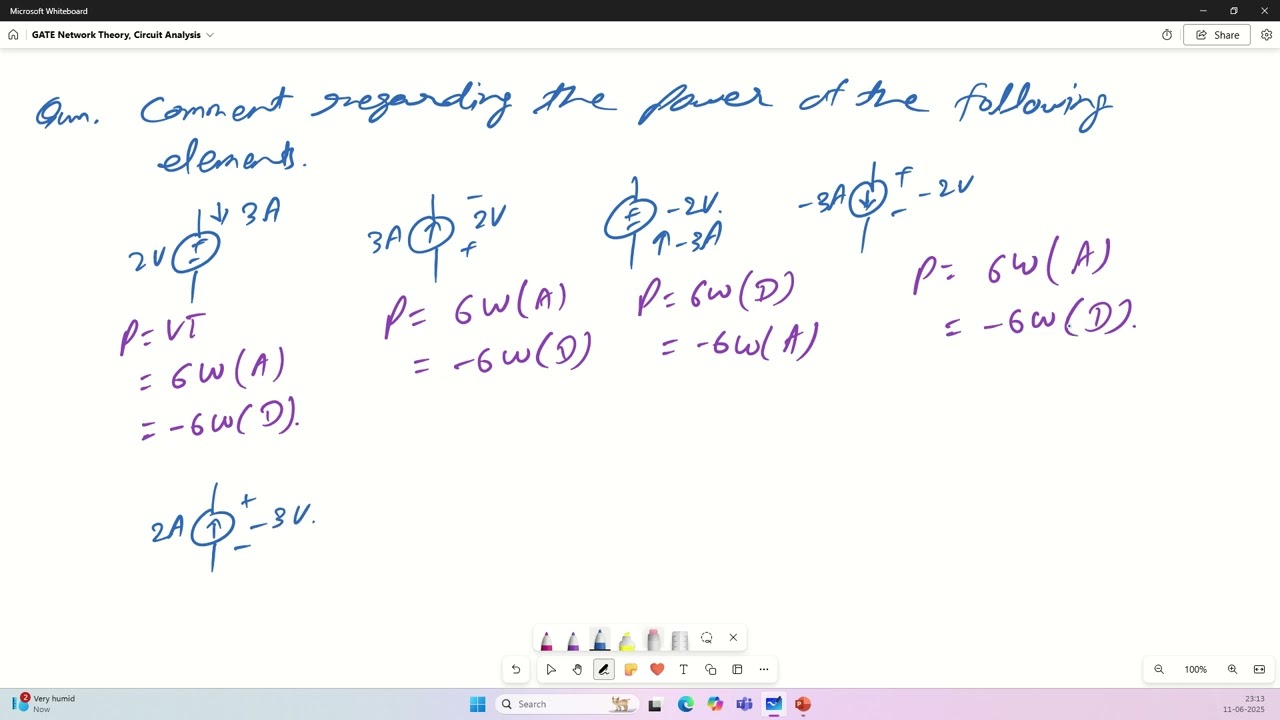 Microsoft Whiteboard
GATE Network Theory, Circuit Analysis
Share
Qun. Comment regarding the power of the following
elements.
2V + - ↓ 3A
3A ↑ - 2V +
+ - -2V.
↑ -3A
-3A ↓ + -2V -
P = VI
= 6W (A)
= -6W (D).
P = 6W (A)
= -6W (D)
P = 6W (D)
= -6W (A)
P = 6W (A)
= -6W (D).
2A ↑ + -3V. -
T
100%
2
Very humid
Now
Search
23:13
11-06-2025